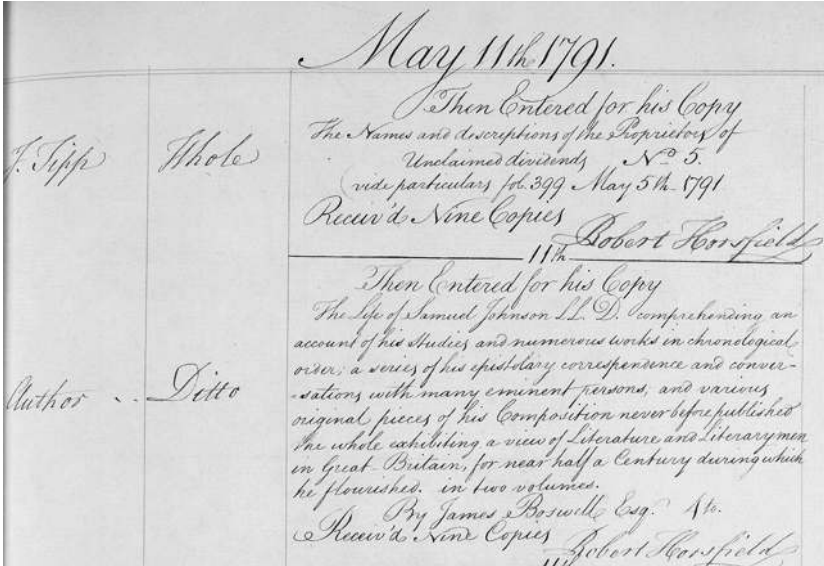 May 11th 1791.
Then Entered for his Copy
The Names and descriptions of the Proprietors of
J. Sipp Whole Unclaimed dividends No 5.
(vide particulars fol. 399 May 5th 1791
Receiv'd Nine Copies
Robert Horsfield
11th
Then Entered for his Copy
The Life of Samuel Johnson LL. D. comprehending an
account of his studies and numerous works in chronological
order; a series of his epistolary correspondence and conver-
Author .. Ditto -sations with many eminent persons; and various
original pieces of his Composition never before published
the whole exhibiting a view of Literature and Literary men
in Great Britain, for near half a Century during which
he flourished. in two volumes.
By James Boswell Esq. 4to.
Receiv'd Nine Copies
Robert Horsfield
11th